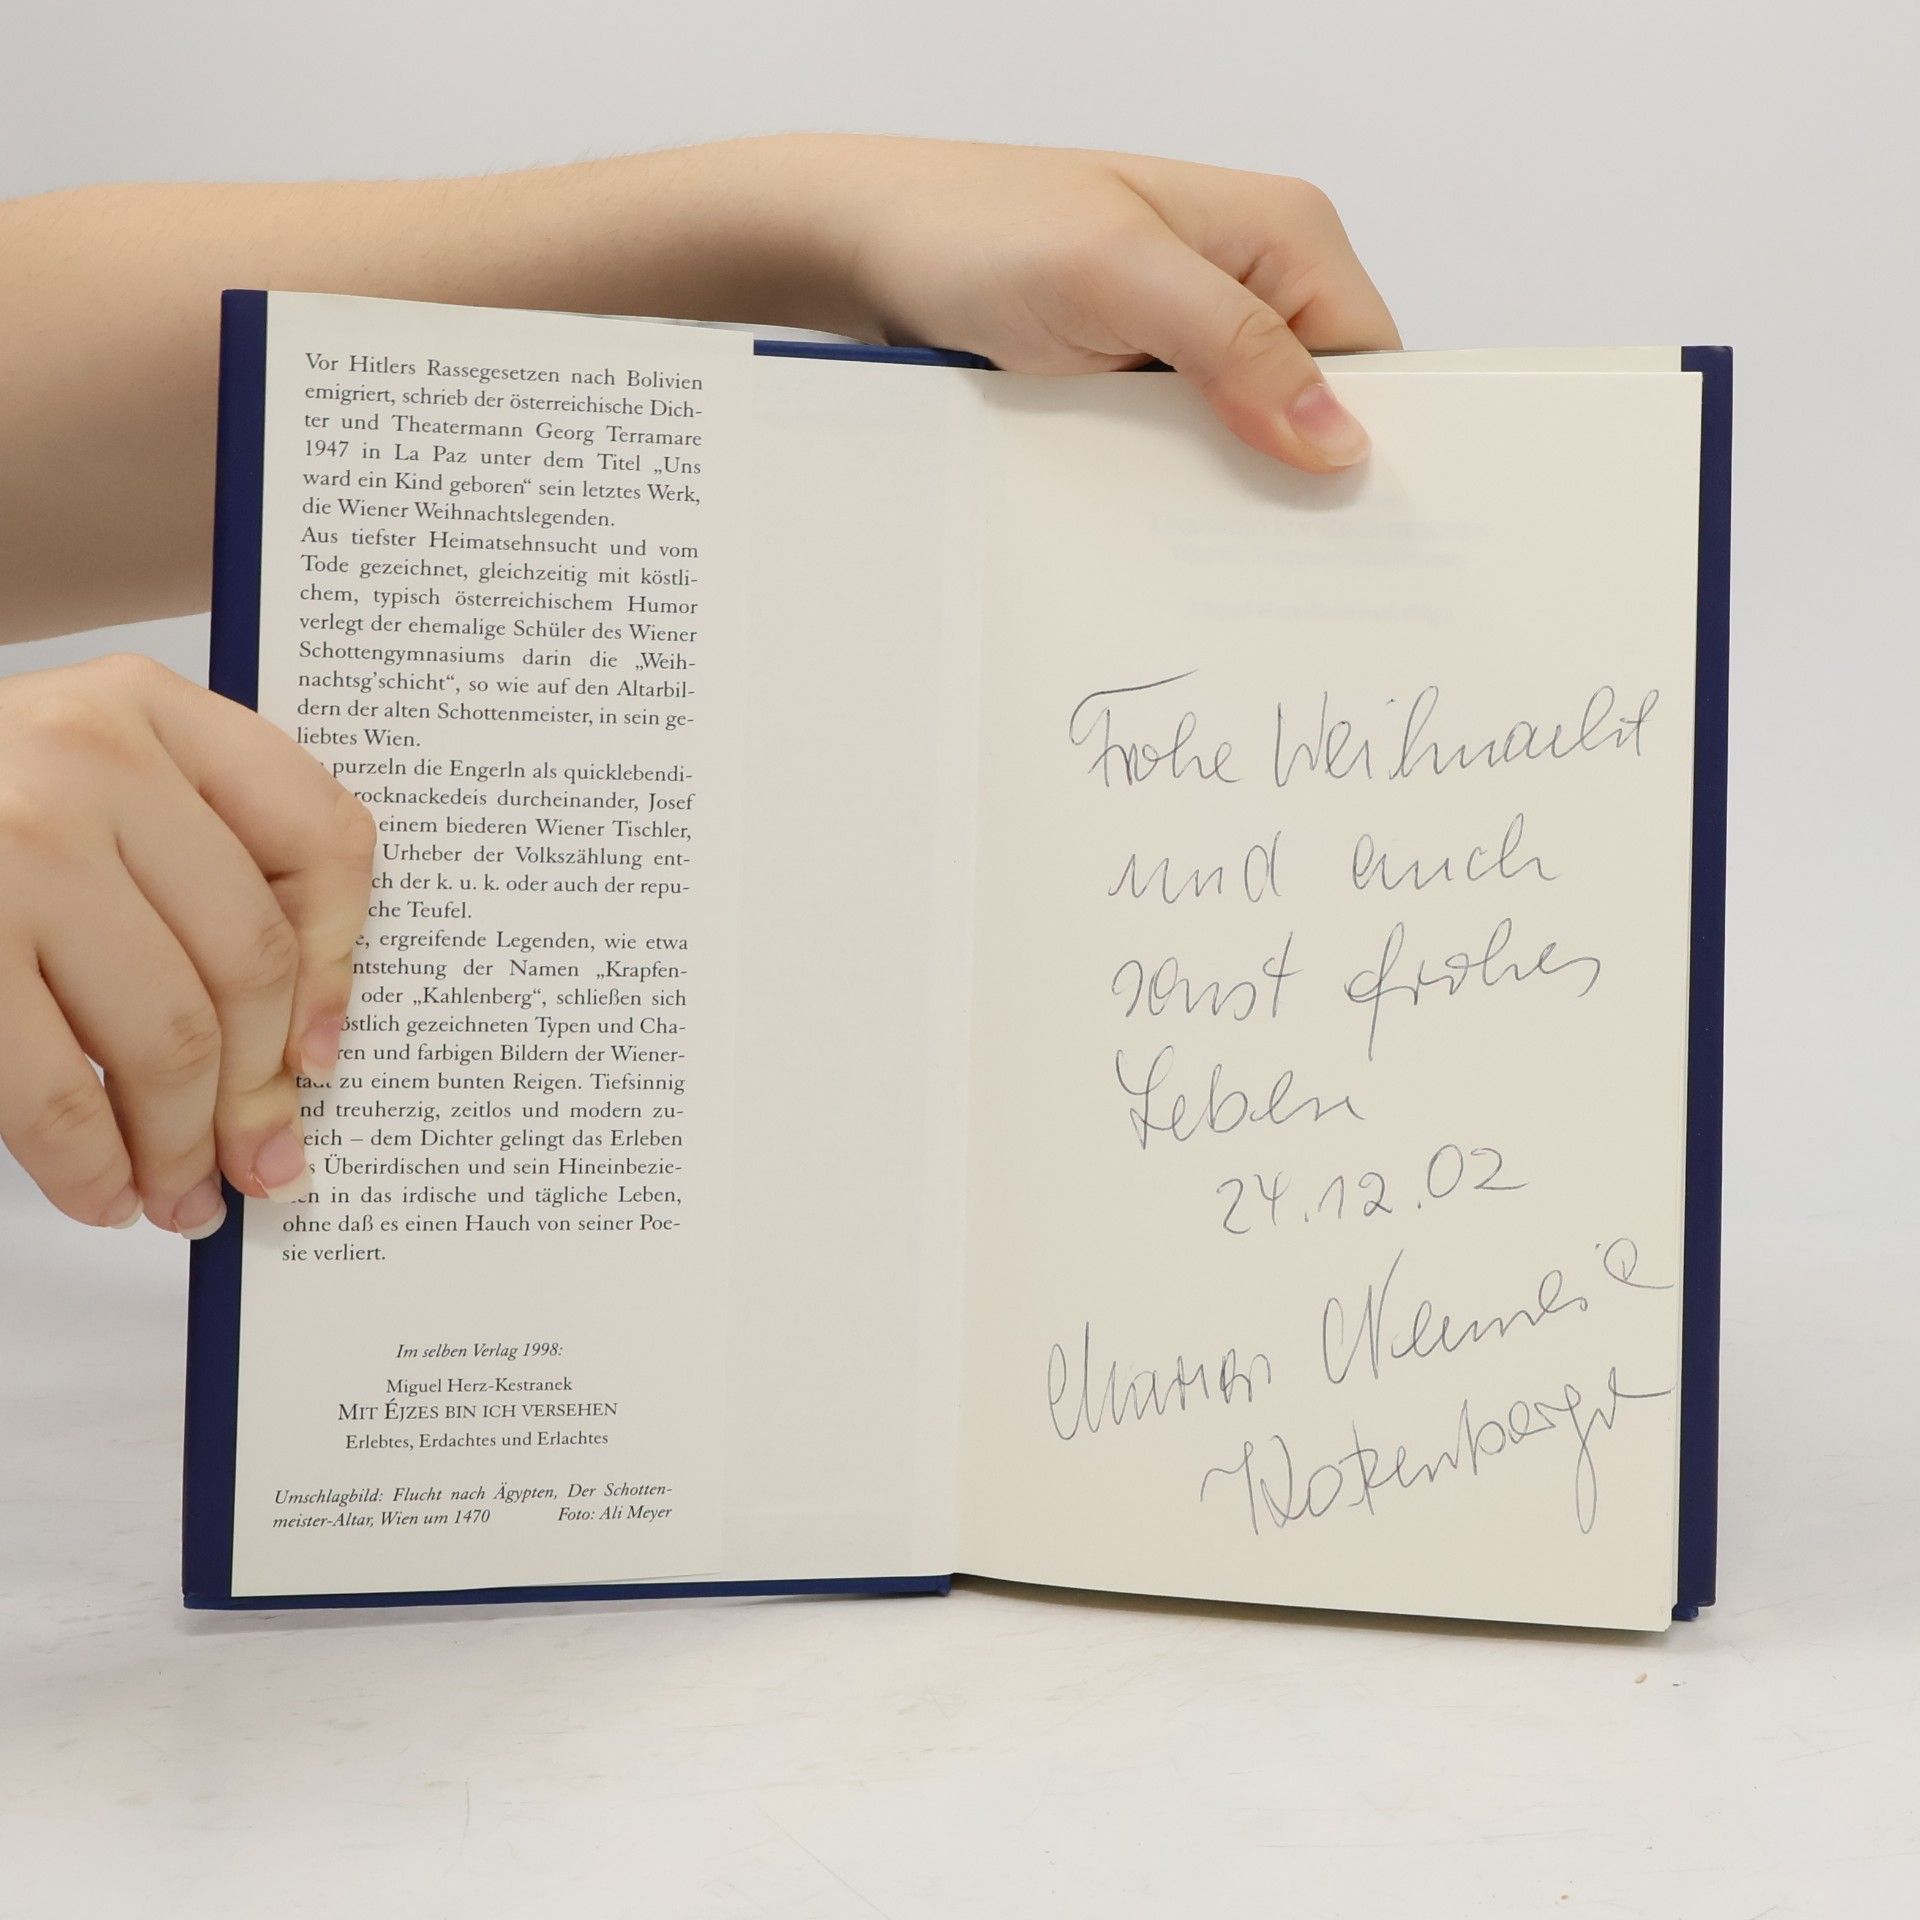 Vor Hitlers Rassegesetzen nach Bolivien
emigriert, schrieb der österreichische Dich-
ter und Theatermann Georg Terramare
1947 in La Paz unter dem Titel „Uns
ward ein Kind geboren“ sein letztes Werk,
die Wiener Weihnachtslegenden.
Aus tiefster Heimatsehnsucht und vom
Tode gezeichnet, gleichzeitig mit köstli-
chem, typisch österreichischem Humor
verlegt der ehemalige Schüler des Wiener
Schottengymnasiums darin die „Weih-
nachtsg’schicht“, so wie auf den Altarbil-
dern der alten Schottenmeister, in sein ge-
liebtes Wien.
purzeln die Engerln als quicklebendi-
rocknackedeis durcheinander, Josef
einem biederen Wiener Tischler,
Urheber der Volkszählung ent-
ch der k. u. k. oder auch der repu-
che Teufel.
e, ergreifende Legenden, wie etwa
ntstehung der Namen „Krapfen-
oder „Kahlenberg“, schließen sich
östlich gezeichneten Typen und Cha-
ren und farbigen Bildern der Wiener-
zu einem bunten Reigen. Tiefsinnig
nd treuherzig, zeitlos und modern zu-
eich – dem Dichter gelingt das Erleben
s Überirdischen und sein Hineinbezie-
en in das irdische und tägliche Leben,
ohne daß es einen Hauch von seiner Poe-
sie verliert.
Im selben Verlag 1998:
Miguel Herz-Kestranek
MIT ÉJZES BIN ICH VERSEHEN
Erlebtes, Erdachtes und Erlachtes
Umschlagbild: Flucht nach Ägypten, Der Schotten-
meister-Altar, Wien um 1470 Foto: Ali Meyer
Frohe Weihnacht
und auch
sonst frohes
Leben
24.12.02